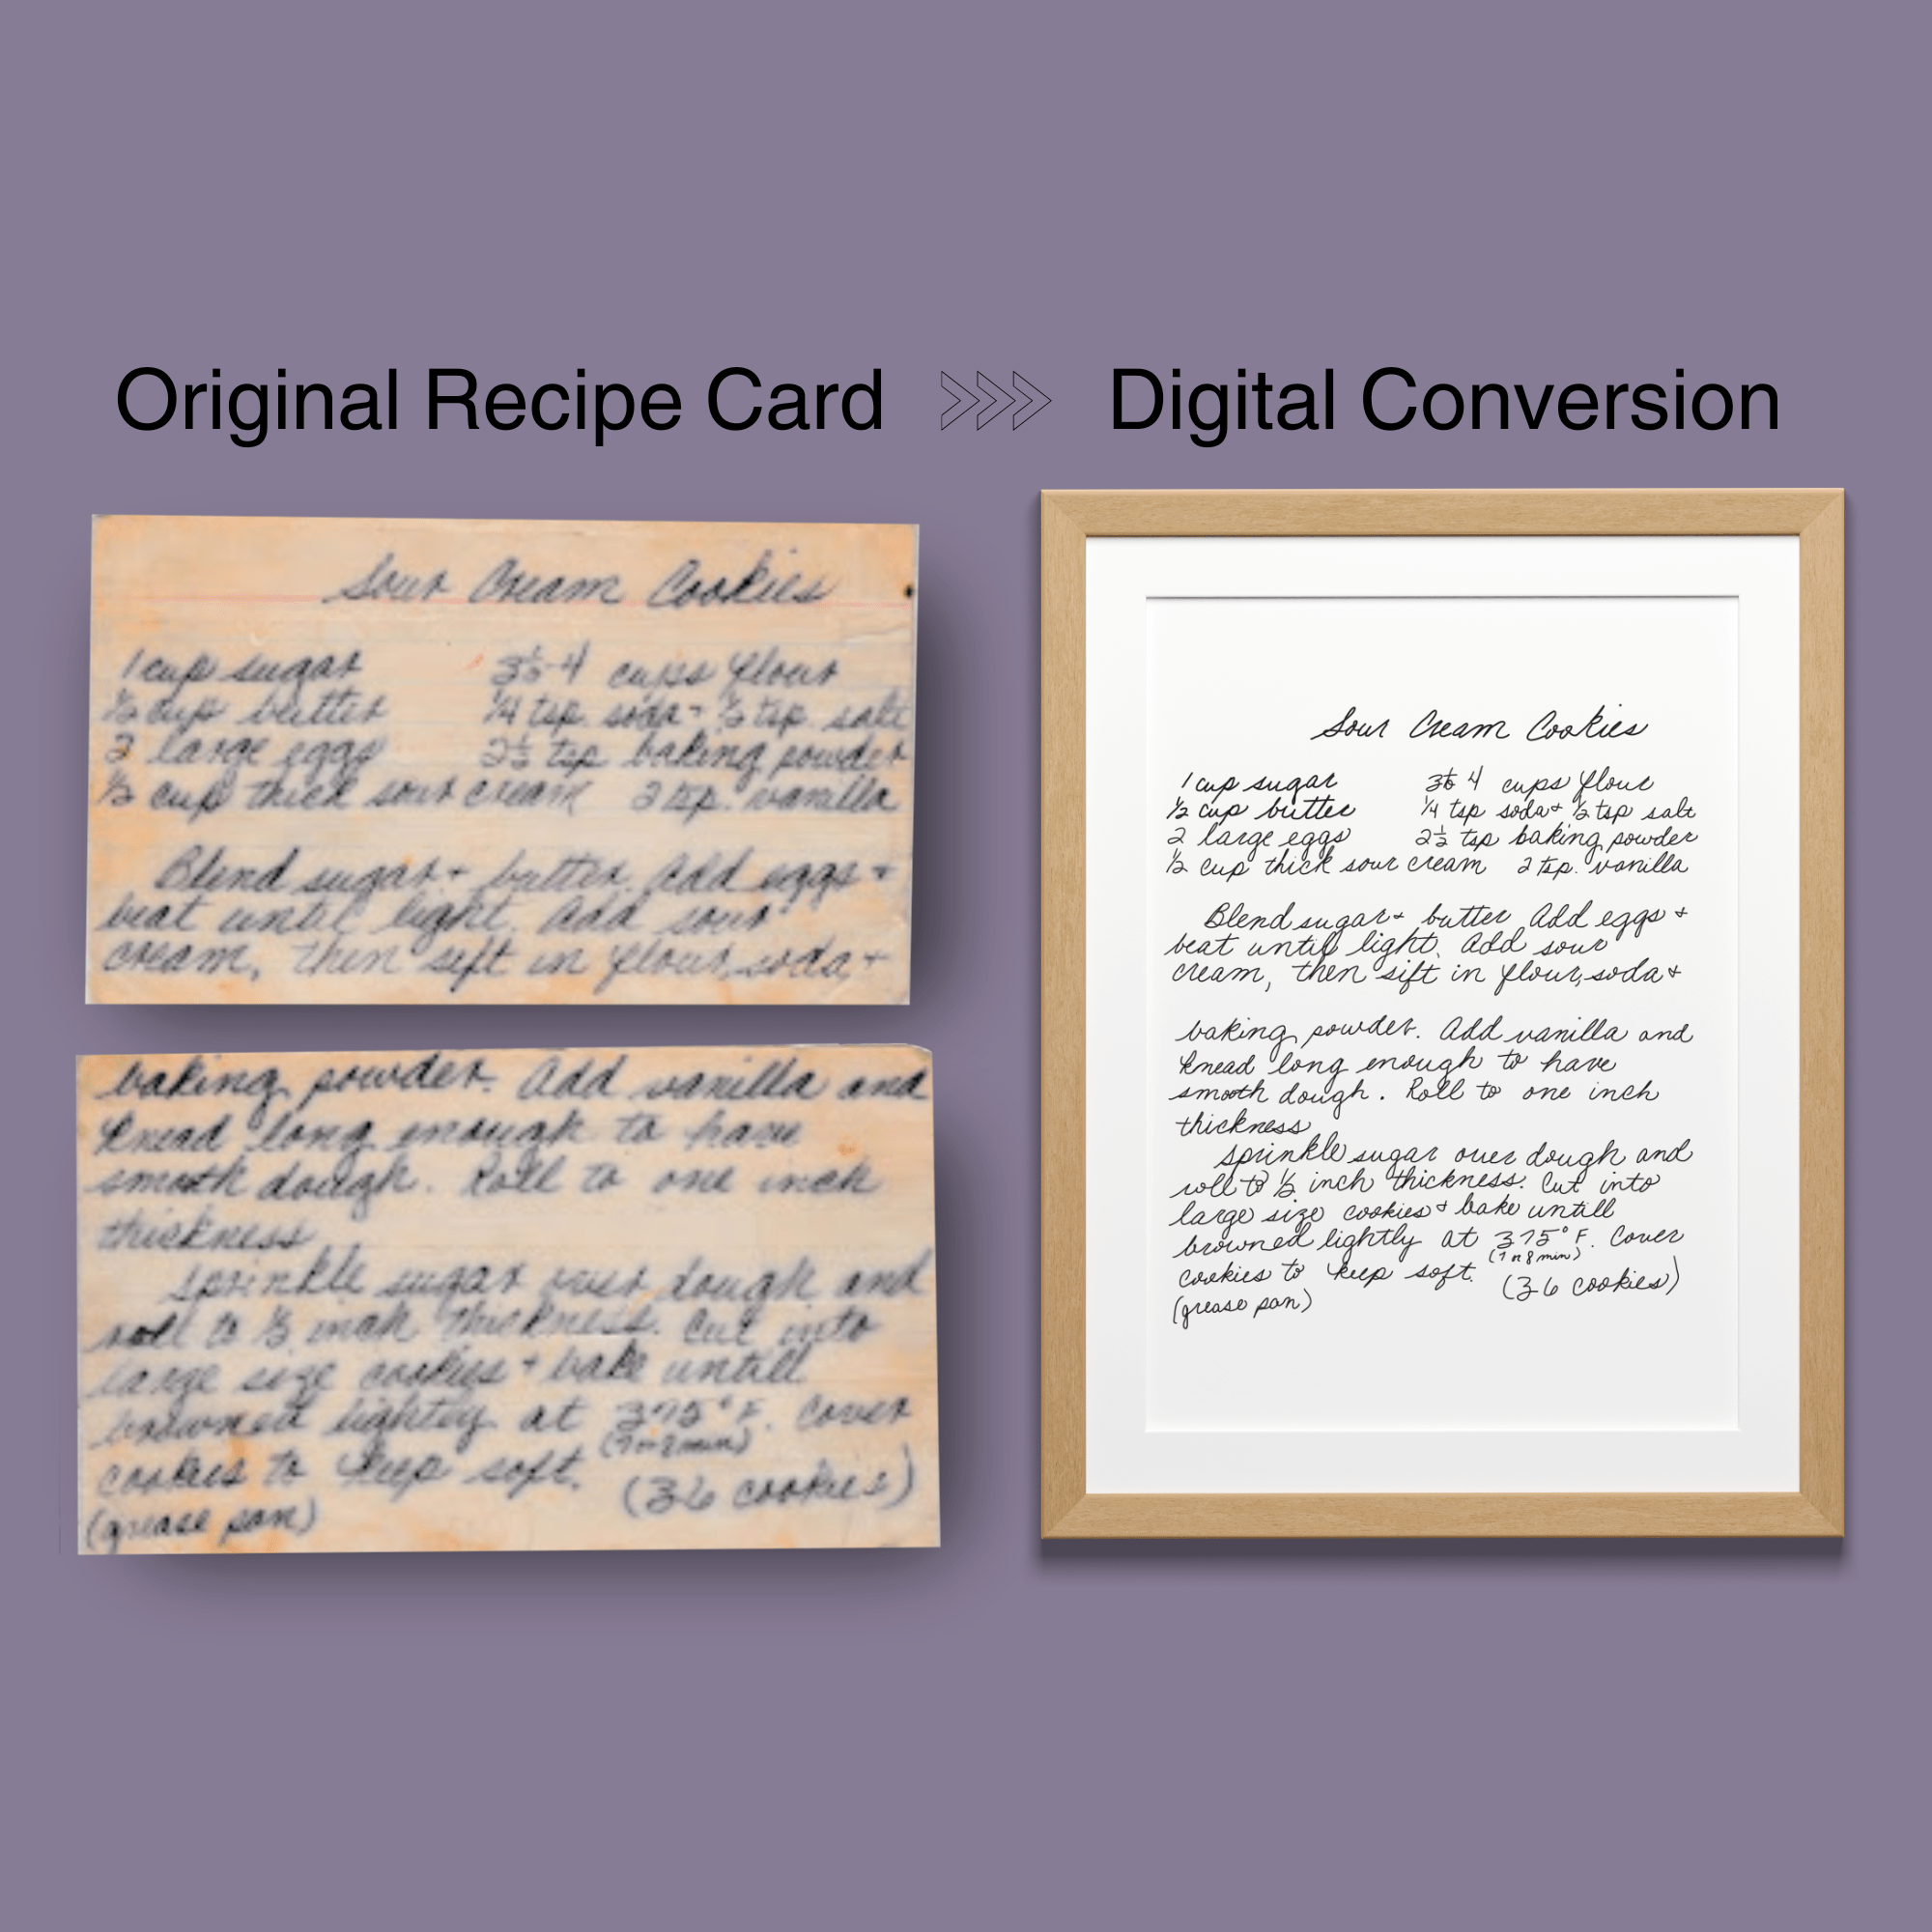 Original Recipe Card
Digital Conversion
Sour Cream Cookies
1 cup sugar 3½-4 cups flour
½ cup butter ¼ tsp. soda + ½ tsp. salt
2 large eggs 2½ tsp baking powder
½ cup thick sour cream 2 tsp. vanilla
Blend sugar + butter. Add eggs +
beat until light. Add sour
cream, then sift in flour, soda +
baking powder. Add vanilla and
knead long enough to have
smooth dough. Roll to one inch
thickness
sprinkle sugar over dough and
roll to ½ inch thickness. Cut into
large size cookies + bake untill
browned lightly at 375° F. Cover
(7 or 8 min)
cookies to keep soft. (36 cookies)
(grease pan)
Sour Cream Cookies
1 cup sugar 3½ 4 cups flour
½ cup butter ¼ tsp soda + ½ tsp salt
2 large eggs 2½ tsp baking powder
½ cup thick sour cream 2 tsp. vanilla
Blend sugar + butter Add eggs +
beat until light. Add sour
cream, then sift in flour, soda +
baking powder. Add vanilla and
knead long enough to have
smooth dough. Roll to one inch
thickness
sprinkle sugar over dough and
roll to ½ inch thickness. Cut into
large size cookies + bake untill
browned lightly at 375° F. Cover
(7 or 8 min)
cookies to keep soft. (36 cookies)
(grease pan)